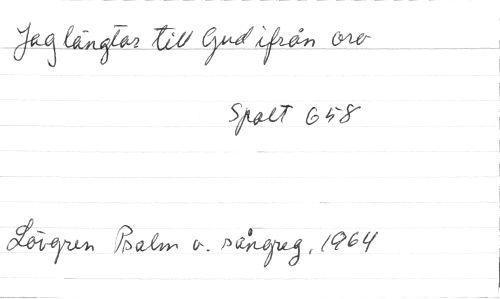 Jag längtar till Gud ifrån oro
Spalt 658
Lövgren Psalm o. sångreg. 1964